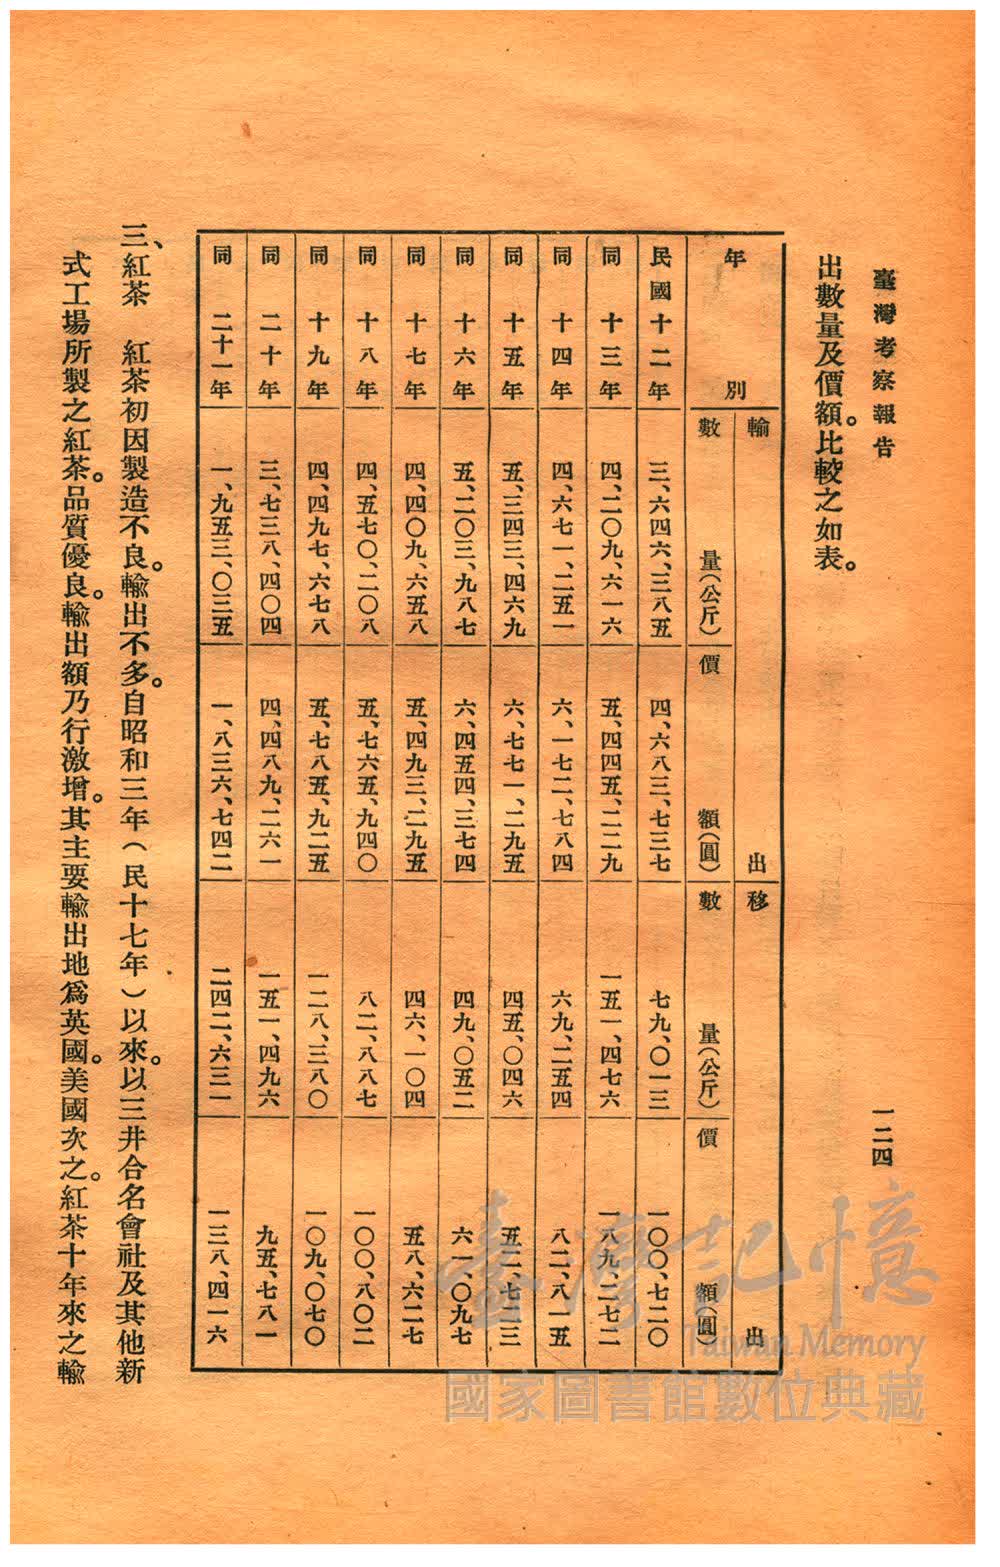 臺灣考察報告
一二四
出數量及價額。比較之如表。
年別
輸出
移出
數量(公斤)
價額(圓)
數量(公斤)
價額(圓)
民國十二年 三、六四六、三八五 四、六八三、七三七 七九、〇一三 一〇〇、七二〇
同十三年 四、二〇九、六一六 五、四四五、二二九 一五一、四七六 一八九、二七二
同十四年 四、六七一、二五一 六、一七二、七八四 六九、二五四 八二、八一五
同十五年 五、三四三、四六九 六、七七一、二九五 四五、〇四六 五二、七二三
同十六年 五、二〇三、九八七 六、四五四、三七四 四九、〇五二 六一、〇九七
同十七年 四、四〇九、六五八 五、四九三、二九五 四六、一〇四 五八、六二七
同十八年 四、五七〇、二〇八 五、七六五、九四〇 八二、八八七 一〇〇、八〇二
同十九年 四、四九七、六七八 五、七八五、九二五 一二八、三八〇 一〇九、〇七〇
同二十年 三、七三八、四〇四 四、四八九、二六一 一五一、四九六 九五、七八一
同二十一年 一、九五三、〇三五 一、八三六、七四二 二四二、六三一 一三八、四一六
三、紅茶 紅茶初因製造不良。輸出不多。自昭和三年(民十七年)以來。以三井合名會社及其他新
式工場所製之紅茶。品質優良。輸出額乃行激增。其主要輸出地爲英國。美國次之。紅茶十年來之輸
臺灣記憶
Taiwan Memory
國家圖書館數位典藏